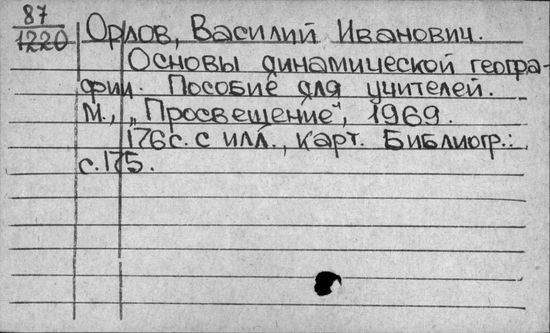 87
1220
Орлов, Василий Иванович.
Основы динамической геогра-
фии. Пособие для учителей.
М., „Просвещение", 1969.
176 с. с илл., карт. Библиогр.:
с. 175.